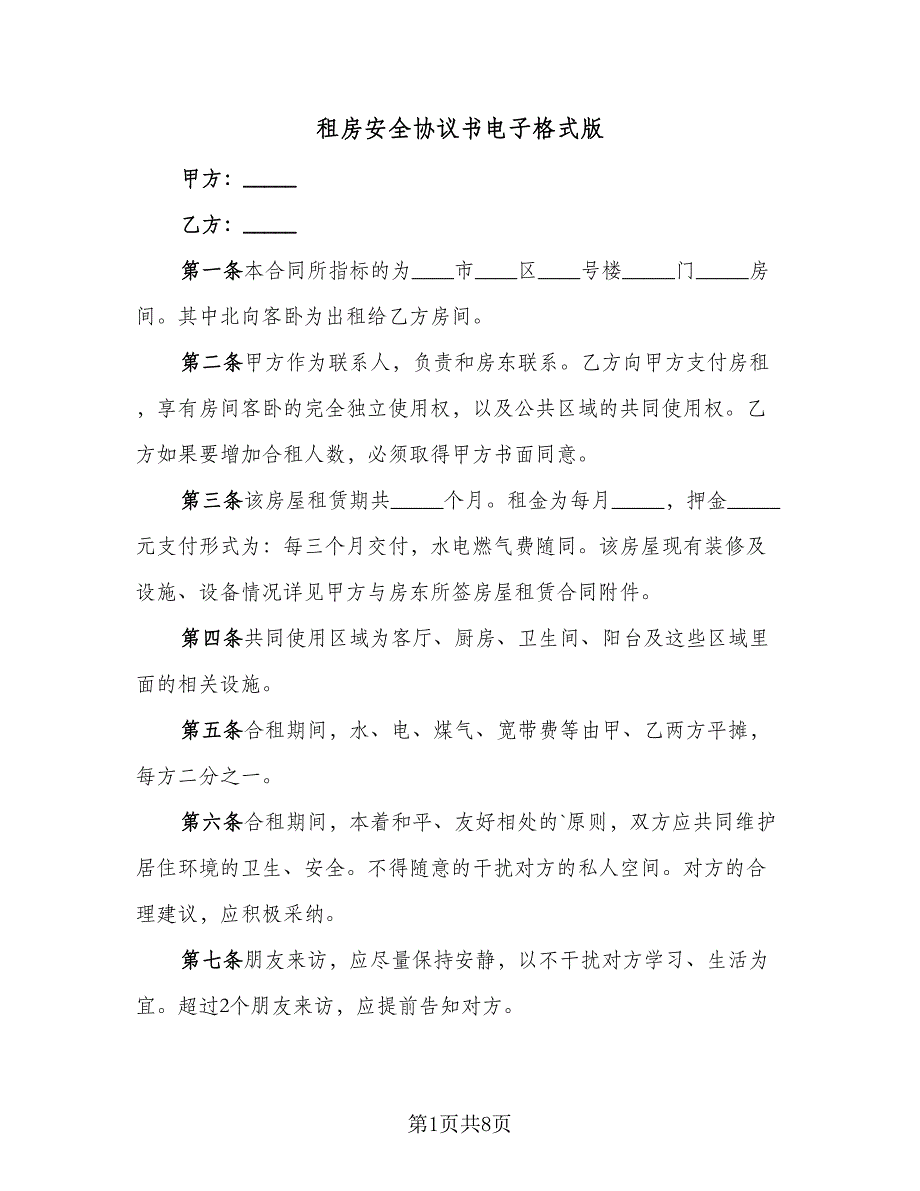 租房安全协议书电子格式版
甲方：_____
乙方：_____
第一条本合同所指标的为____市____区____号楼_____门_____房
间。其中北向客卧为出租给乙方房间。
第二条甲方作为联系人，负责和房东联系。乙方向甲方支付房租
，享有房间客卧的完全独立使用权，以及公共区域的共同使用权。乙
方如果要增加合租人数，必须取得甲方书面同意。
第三条该房屋租赁期共_____个月。租金为每月_____，押金_____
元支付形式为：每三个月交付，水电燃气费随同。该房屋现有装修及
设施、设备情况详见甲方与房东所签房屋租赁合同附件。
第四条共同使用区域为客厅、厨房、卫生间、阳台及这些区域里
面的相关设施。
第五条合租期间，水、电、煤气、宽带费等由甲、乙两方平摊，
每方二分之一。
第六条合租期间，本着和平、友好相处的`原则，双方应共同维护
居住环境的卫生、安全。不得随意的干扰对方的私人空间。对方的合
理建议，应积极采纳。
第七条朋友来访，应尽量保持安静，以不干扰对方学习、生活为
宜。超过2个朋友来访，应提前告知对方。
第1页共8页